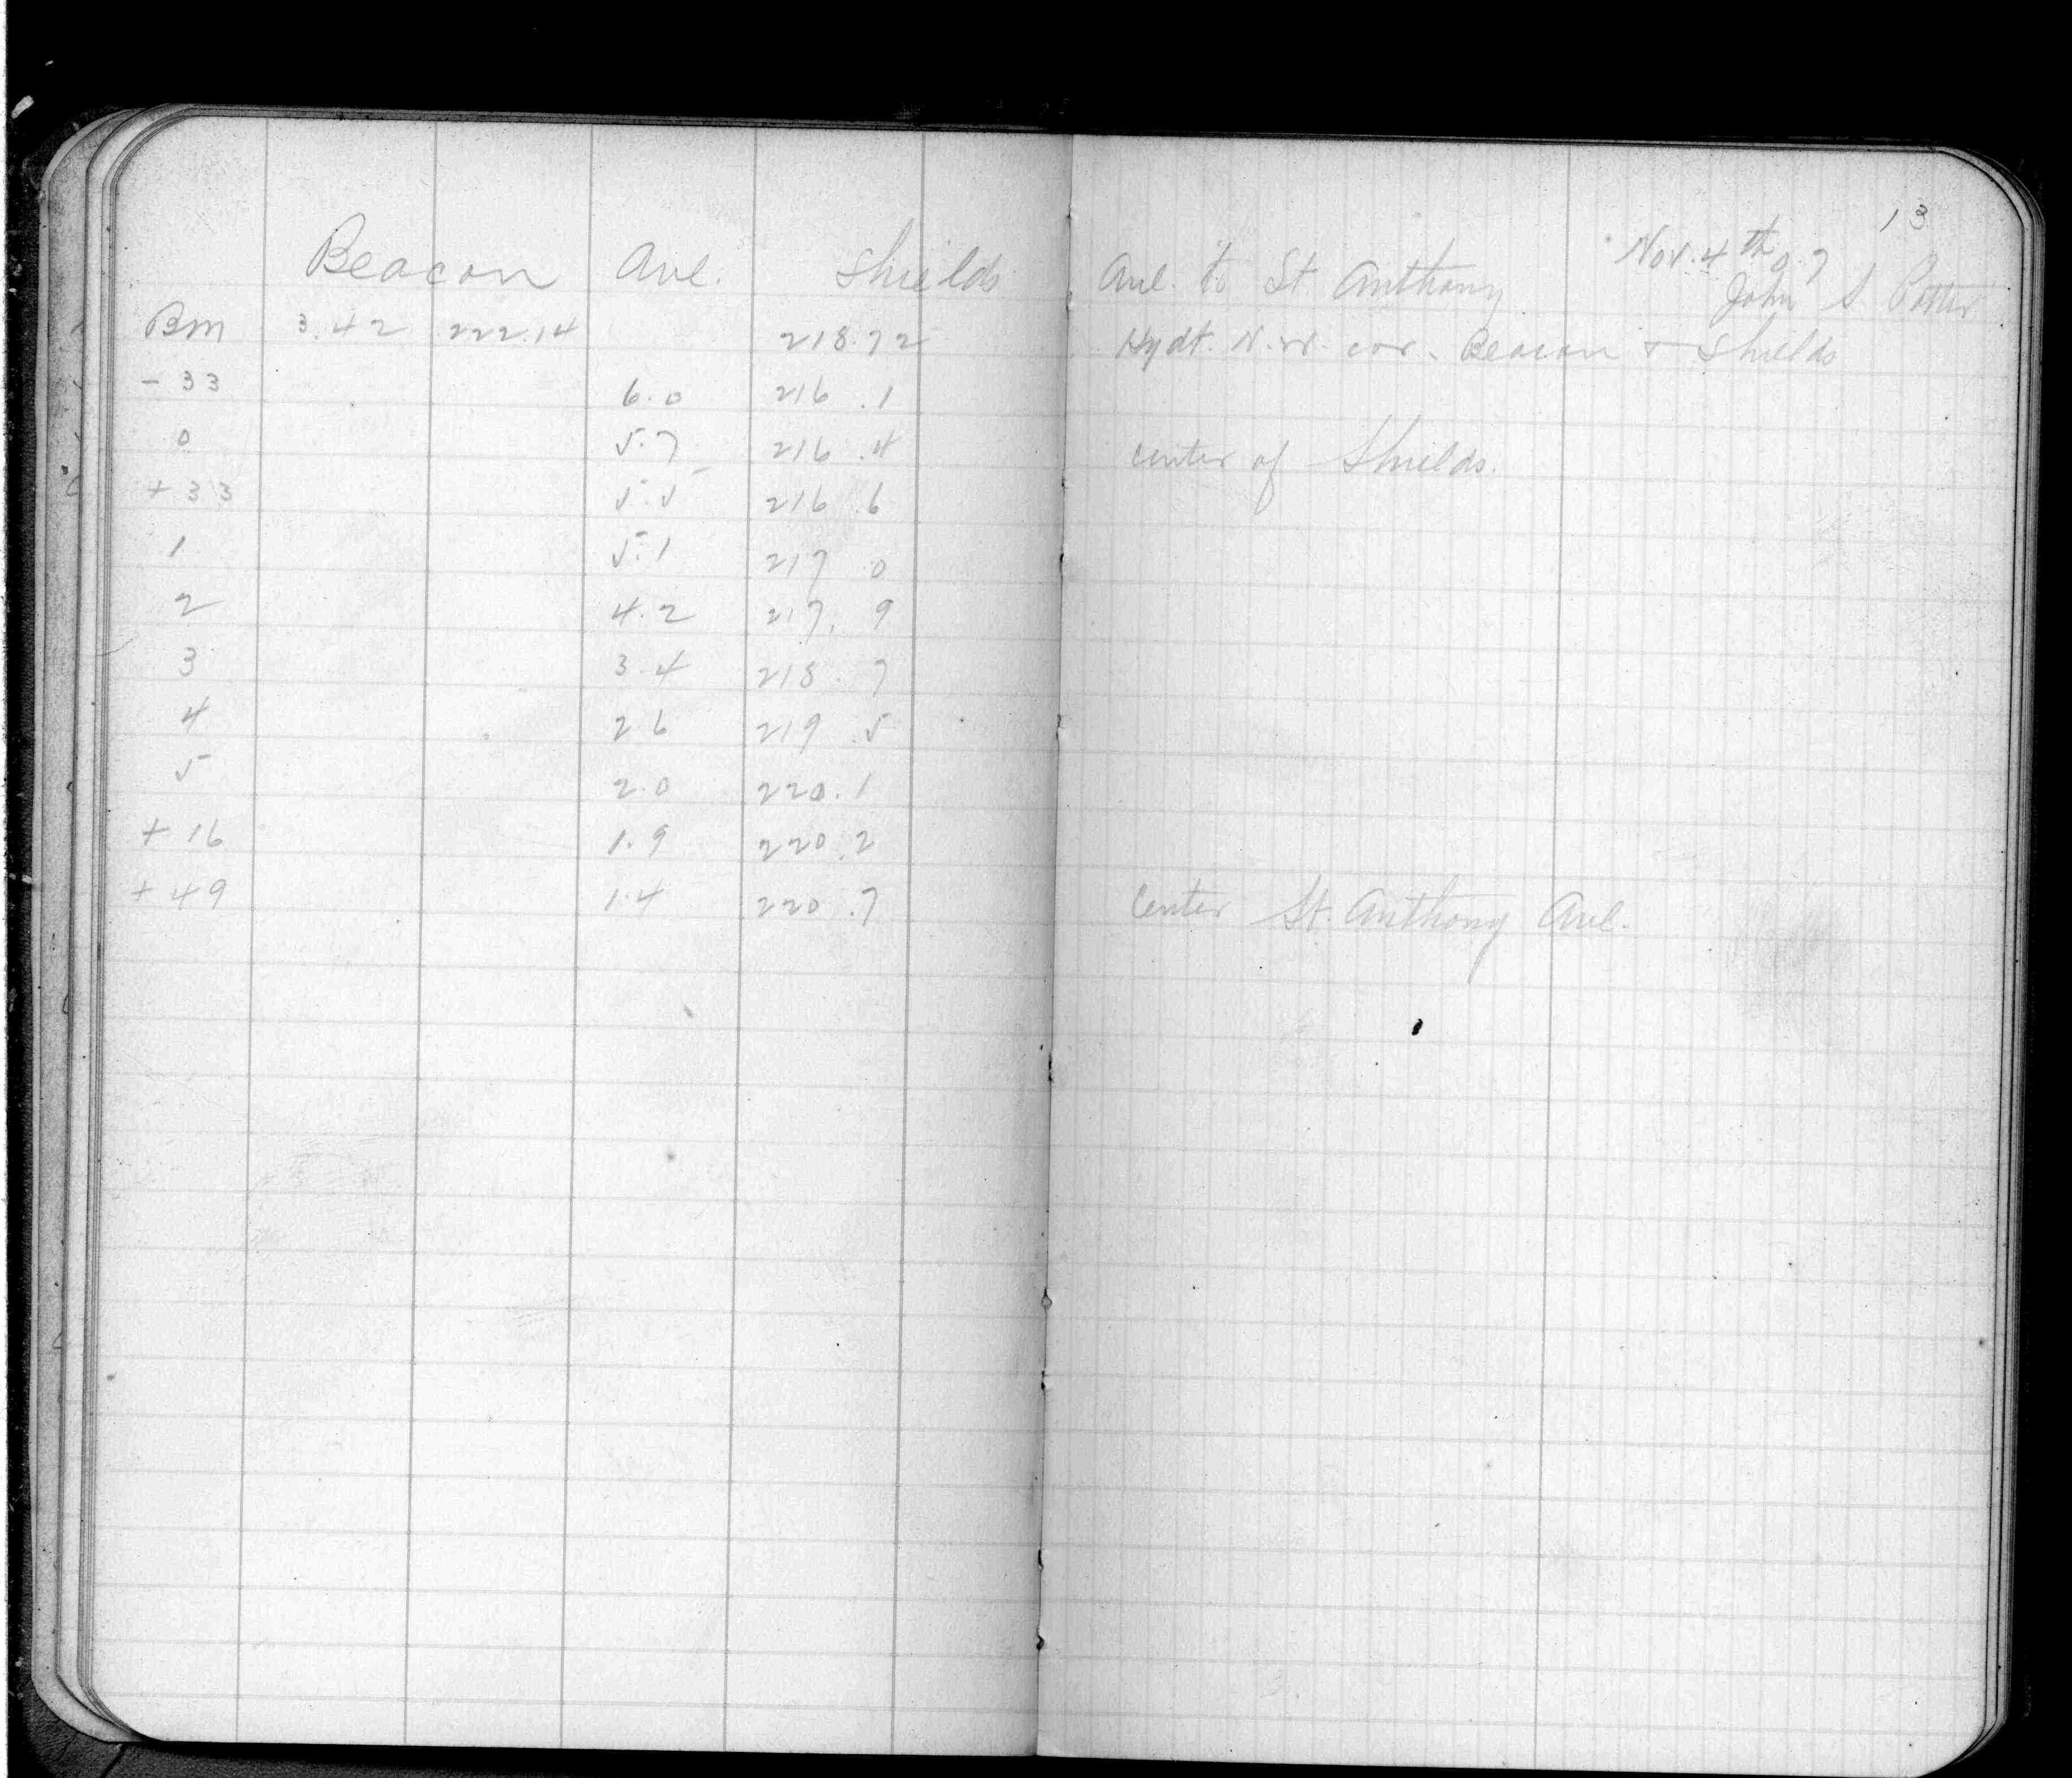 13
Nov. 4th 07
Beacon Ave. Shields Ave. to St Anthony John S. Potter
Bm 3.42 222.14 218.72 Hydt. N.W. cor. Beacon + Shields
- 33 6.0 216.1
0 5.7 216.4 center of Shields.
+ 33 5.5 216.6
1 5.1 217 0
2 4.2 217. 9
3 3.4 218. 7
4 2 6 219 .5
5 2.0 220.1
+ 16 1.9 220.2
+ 49 1.4 220.7 Center St. Anthony Ave.